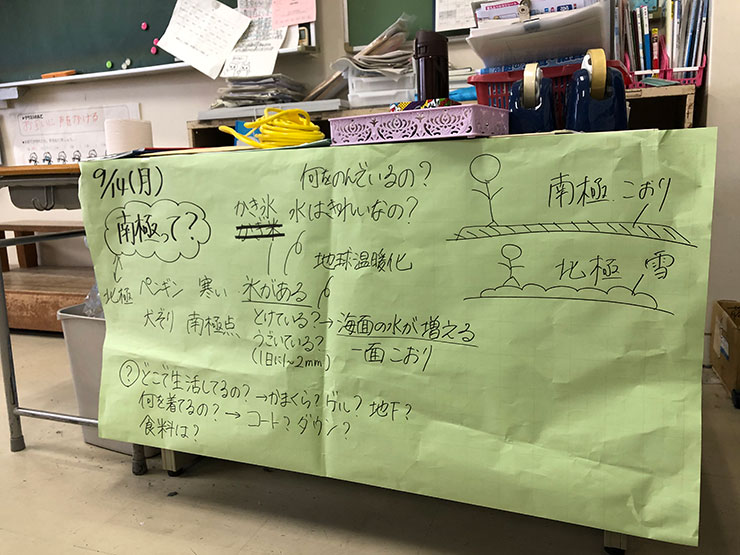 9/14(月)
何をのんでいるの?
かき氷
水はきれいなの?
南極って?
地球温暖化
北極
ペンギン 寒い 氷がある
犬ぞり 南極点
とけている?→海面の水が増える
うごいている?
(1日に1~2mm)
一面こおり
南極 こおり
北極 雪
? どこで生活してるの?→かまくら? ビル? 地下?
何を着てるの?→コート? ダウン?
食料は?